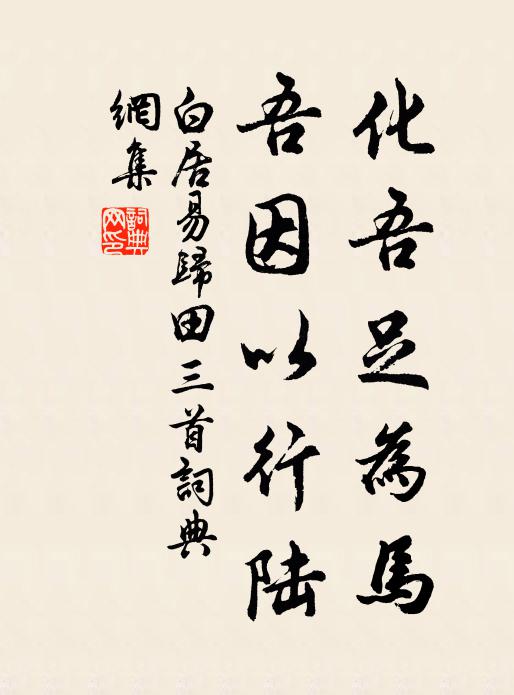 化吾足為馬
吾因以行陆
白居易歸田三首詞典
網集
詞典
网印